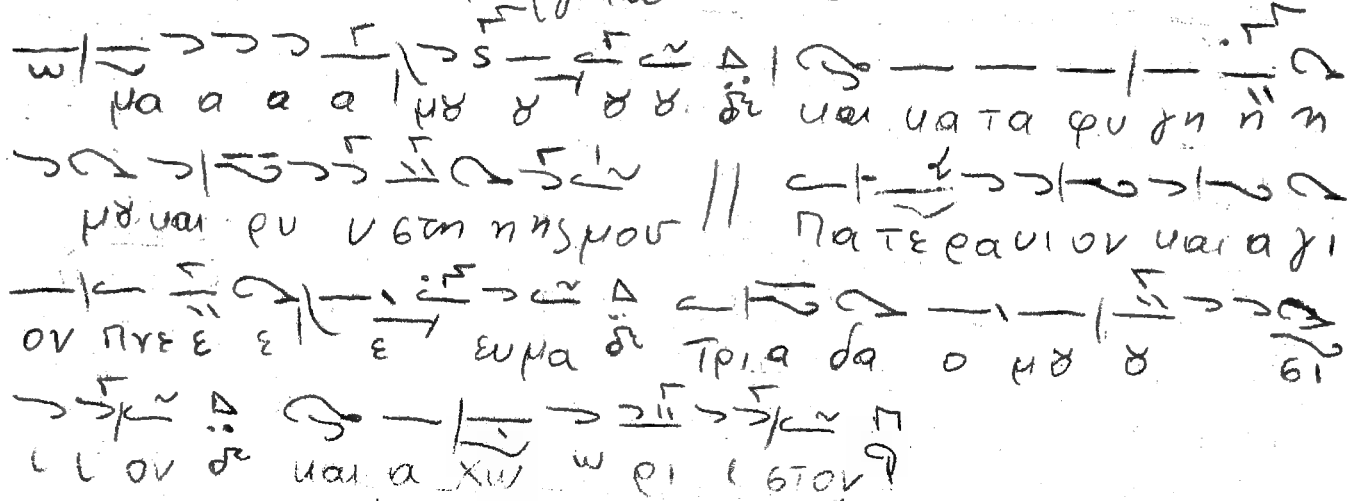 ω μα α α α μȣ ȣ ȣ ȣ και κα τα φυ γη η η
μȣ και ρυ υ στη η ης μου // Πα τε ρα υι ον και α γι
ον πνε ε ε ε ευμα τρι α δα ο μȣ ȣ σι
ι ι ον και α χω ω ρι ι στον